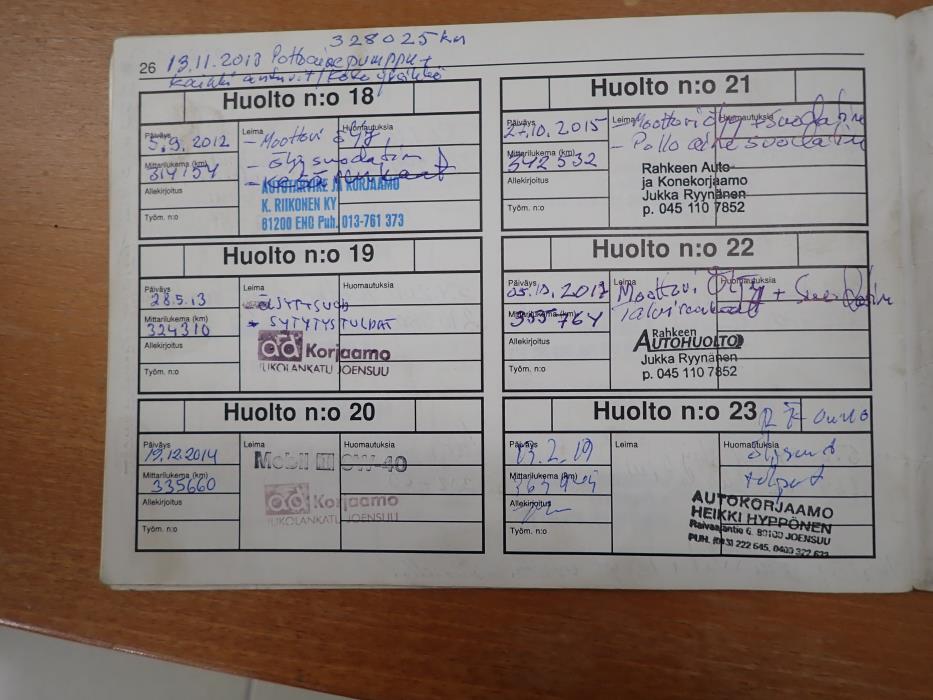 328025km
26 13.11.2013 Polttoainepumppu +
Huolto n:o 18
Päiväys
5.9.2012
Leima
Huomautuksia
- Moottori öljy
- Öljysuodatin
Mittarilukema (km)
314154
AUTOTARVIKE JA KORJAAMO
K. RIIKONEN KY
81200 ENO Puh. 013-761 373
Allekirjoitus
Työm. n:o
Huolto n:o 19
Päiväys
28.5.13
Leima
Huomautuksia
Mittarilukema (km)
324310
- SYTYTYSTULPAT
ad Korjaamo
TUKOLANKATU JOENSUU
Allekirjoitus
Työm. n:o
Huolto n:o 20
Päiväys
19.12.2014
Leima
Huomautuksia
Mobil 1 0W-40
Mittarilukema (km)
335660
ad Korjaamo
TUKOLANKATU JOENSUU
Allekirjoitus
Työm. n:o
Huolto n:o 21
Päiväys
27.10.2015
Leima
Huomautuksia
- Moottoriöljy + suodatin
- Polloainesuodatin
Mittarilukema (km)
342532
Rahkeen Auto-
ja Konekorjaamo
Jukka Ryynänen
p. 045 110 7852
Allekirjoitus
Työm. n:o
Huolto n:o 22
Päiväys
Leima
Huomautuksia
Moottori Öljy + Suodatin
Talvirenkaat
Mittarilukema (km)
355764
Rahkeen
AUTOHUOLTO
Jukka Ryynänen
p. 045 110 7852
Allekirjoitus
Työm. n:o
Huolto n:o 23
Päiväys
13.2.19
Leima
Huomautuksia
Mittarilukema (km)
Allekirjoitus
Työm. n:o
AUTOKORJAAMO
HEIKKI HYPPÖNEN
Raivaajantie 6, 80100 JOENSUU
PUH. (013) 222 645, 0400 327 622